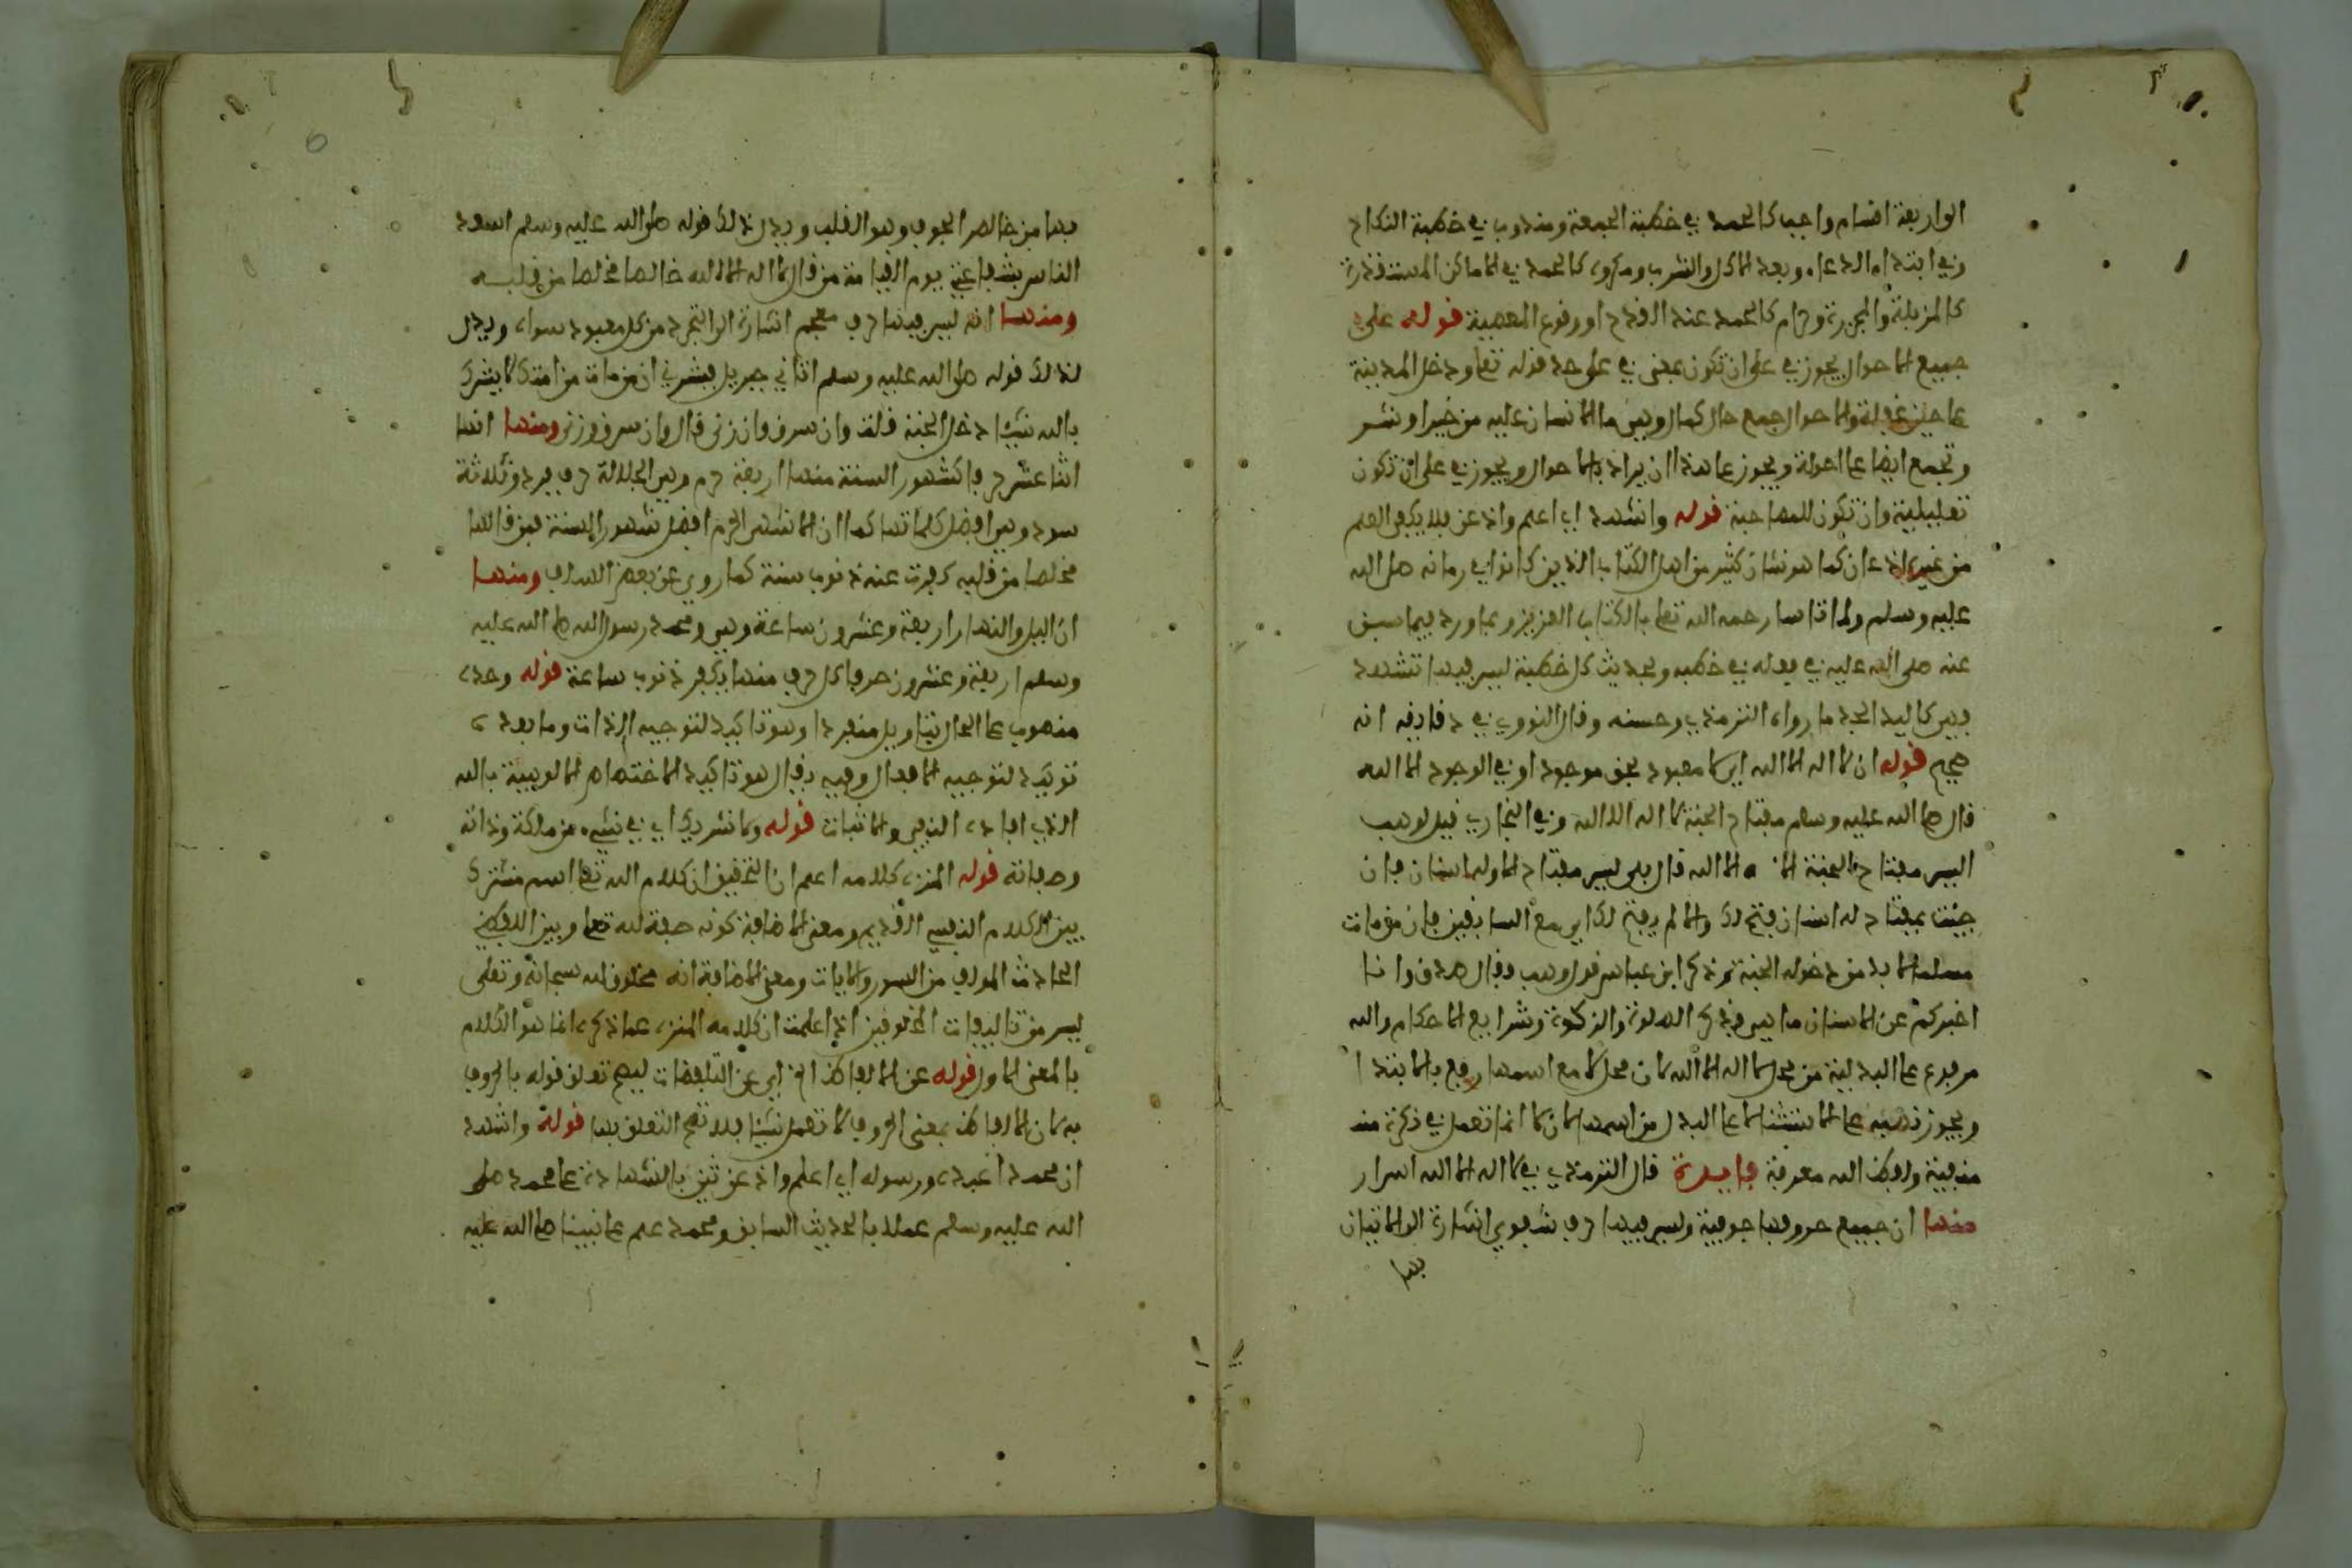 الى اربعة اقسام واجب كالحمد في خطبة الجمعة ومندوب في خطبة النكاح
وفي ابتداء الدعاء وبعد الاكل والشرب ومكروه كالحمد في الاماكن المستقذرة
كالمزبلة والمجزرة وحرام كالحمد عند الفرح او وقوع المعصية قوله على
جميع الاحوال يجوز في على ان تكون بمعنى في على حد قوله تعلى ودخل المدينة
على حين غفلة والاحوال جمع حال كمال وهي ما الانسان عليه من خير او شر
وتجمع ايضا على احولة ويجوز على هذا ان يراد بالاحوال ويجوز في على ان تكون
تعليلية وان تكون للمصاحبة قوله واشهد اي اعلم واذعن فلا يكفي العلم
من غير اذعان كما هو شان كثير من اهل الكتاب الذين كانوا في زمانه صلى الله
عليه وسلم ولما تاسا رحمه الله تعلى بالكتاب العزيز وبما ورد فيما سبق
عنه صلى الله عليه في قوله في خطبه وبحديث كل خطبة ليس فيها تشهد
فهي كاليد الجذما رواه الترمذي وحسنه وقال النووي في دقايقه انه
صحيح قوله ان لا اله الا الله اي لا معبود بحق موجود او في الوجود الا الله
قال صلى الله عليه وسلم مفتاح الجنة لا اله الا الله وفي البخاري قيل لوهب
اليس مفتاح الجنة لا اله الا الله قال بلى ليس مفتاح الا وله اسنان فان
جئت بمفتاح له اسنان فتح لك والا لم يفتح لك اي مع السابقين فان من مات
مسلما لا بد من دخوله الجنة ثم ذكر ابن عباس قول وهب فقال صدق وانا
اخبركم عن الاسنان ما هي فذكر الصلوة والزكوة وشرايع الاحكام والله
مرفوع على البدلية من محل لا اله الا الله لان محل لا مع اسمها رفع بالابتدا
ويجوز نصبه على الاستثنا لا على البدل من اسمها لان لا انما تعمل في نكرة منـ
منفية ولفظ الله معرفة فايدة قال الترمذي في لا اله الا الله اسرار
منها ان جميع حروفها جوفية وليس فيها حرف شفوي اشارة الى الاتيان
بها
بها من خالص الجوف وهو القلب ويدل لذلك قوله صلى الله عليه وسلم اسعد
الناس بشفاعتي يوم القيامة من قال لا اله الا الله خالصا مخلصا من قلبه
ومنها انه ليس فيها حرف معجم اشارة الى التجرد من كل معبود سواه ويدل
لذلك قوله صلى الله عليه وسلم اتاني جبريل فبشرني ان من مات من امتك لا يشرك
بالله شيئا دخل الجنة قلت وان سرق وان زنى قال وان سرق وزنى ومنها انها
اثنا عشر حرفا كشهور السنة منها اربعة حرم وهي الجلالة حرف فرد وثلاثة
سرد وهي افضل كلماتها كما ان الاشهر الحرم افضل شهور السنة فمن قالها
مخلصا من قلبه كفرت عنه ذنوب سنة كما روي عن بعض السلف ومنها
ان الليل والنهار اربعة وعشرون ساعة وهي ومحمد رسول الله صلى الله عليه
وسلم اربعة وعشرون حرفا كل حرف منها يكفر ذنوب ساعة قوله وحده
منصوب على الحال بتاويل منفردا وهو تاكيد لتوحيد الذات وما بعده
توكيد لتوحيد الافعال وفيه رد قال هو تاكيد الاختصاص الالوهية بالله
الذي افاده النفي والاثبات قوله ولا شريك اي في شيء من ملكه وذاته
وصفاته قوله المنزه كلامه اعلم ان التحقيق ان كلام الله تعلى اسم مشترك
بين الكلام النفسي القديم ومعنى الاضافة كونه صفة لله تعلى وبين اللفظي
الحادث المولف من السور والايات ومعنى الاضافة انه مخلوق لله سبحانه وتعلى
ليس من تاليفات المخلوقين اذا علمت ان كلامه المنزه عما ذكره انما هو الكلام
بالمعنى الاول قوله عن الالفاظ الخ اي عن التلفظات ليصح تعلق قوله بالحروف
به لان الالفاظ بمعنى الحروف لا تعمل شيئا فلا تصح التعلق بها قوله واشهد
ان محمدا عبده ورسوله اي اعلم واذعن ثنى بالشهادة على محمد صلى
الله عليه وسلم عملا بالحديث السابق ومحمد علم على نبينا صلى الله عليه